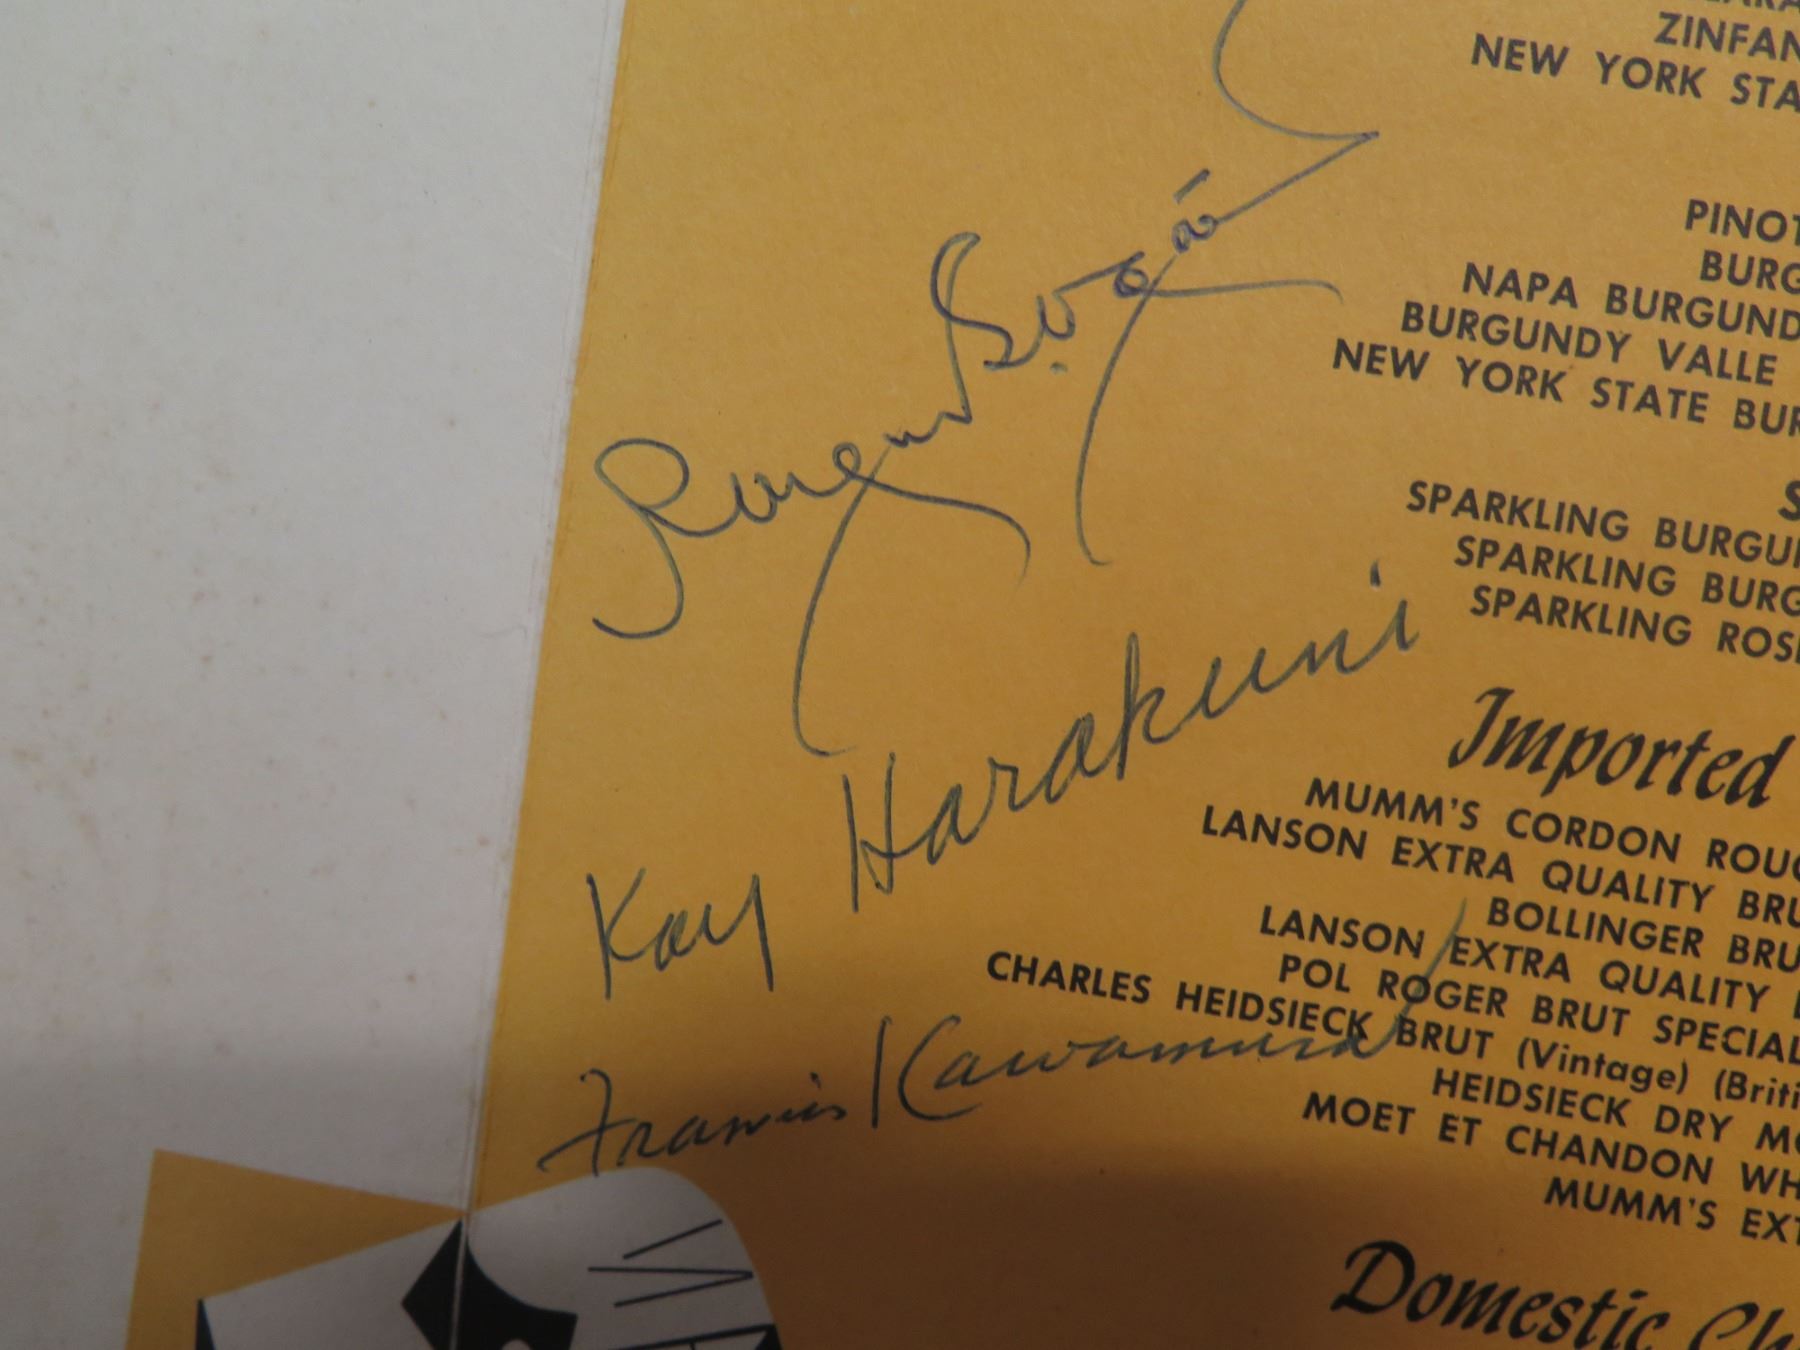 ZINFAN
NEW YORK STA
PINOT
BURG
NAPA BURGUND
BURGUNDY VALLE
NEW YORK STATE BUR
S
SPARKLING BURGU
SPARKLING BURG
SPARKLING ROS
Kay Harakuni
Imported
MUMM'S CORDON ROUG
LANSON EXTRA QUALITY BRU
BOLLINGER BRU
LANSON EXTRA QUALITY
POL ROGER BRUT SPECIAL
CHARLES HEIDSIECK BRUT (Vintage) (Briti
HEIDSIECK DRY MO
MOET ET CHANDON WH
MUMM'S EXT
Francis Kawamura
Domestic Ch